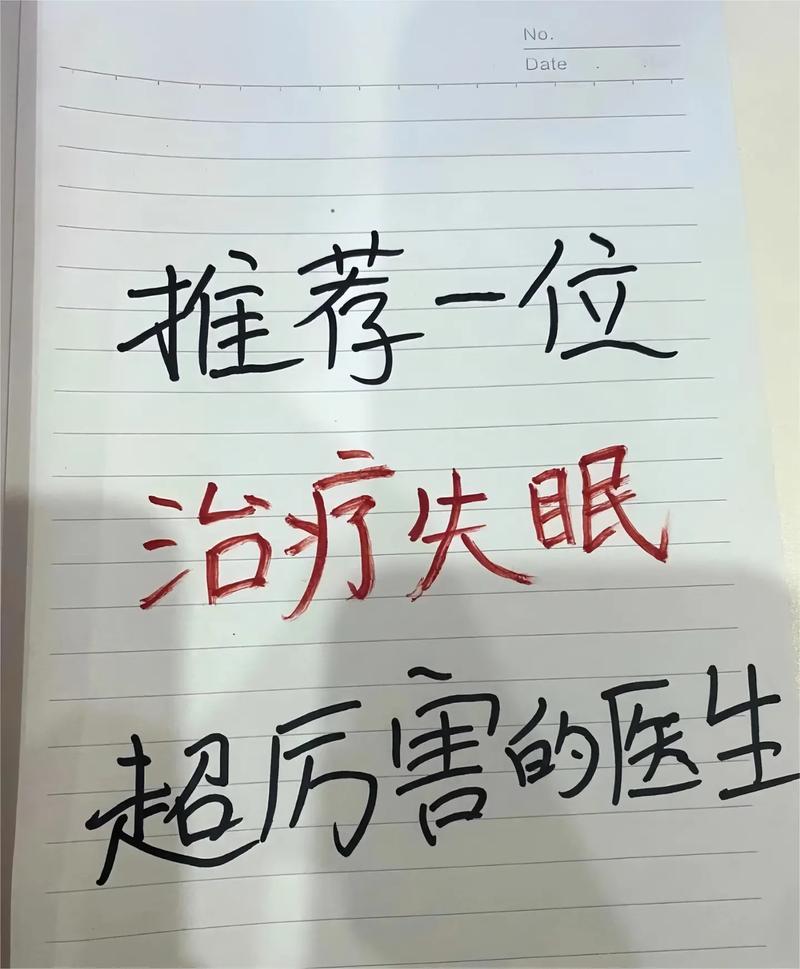 No.
Date
推荐一位
治疗失眠
超厉害的医生